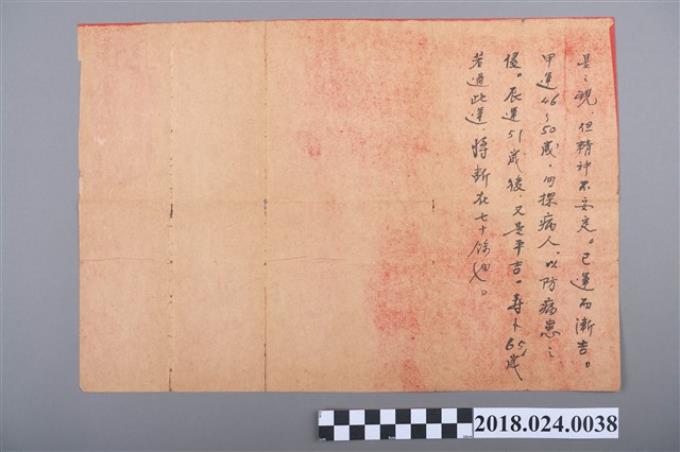 是之現，但精神不安定。己運而漸吉。
甲運46～50歲，勿探病人，以防病患之
侵。辰運51歲後，又是平吉。壽卜65歲
若過此運，將斷在七十餘也。
2018.024.0038